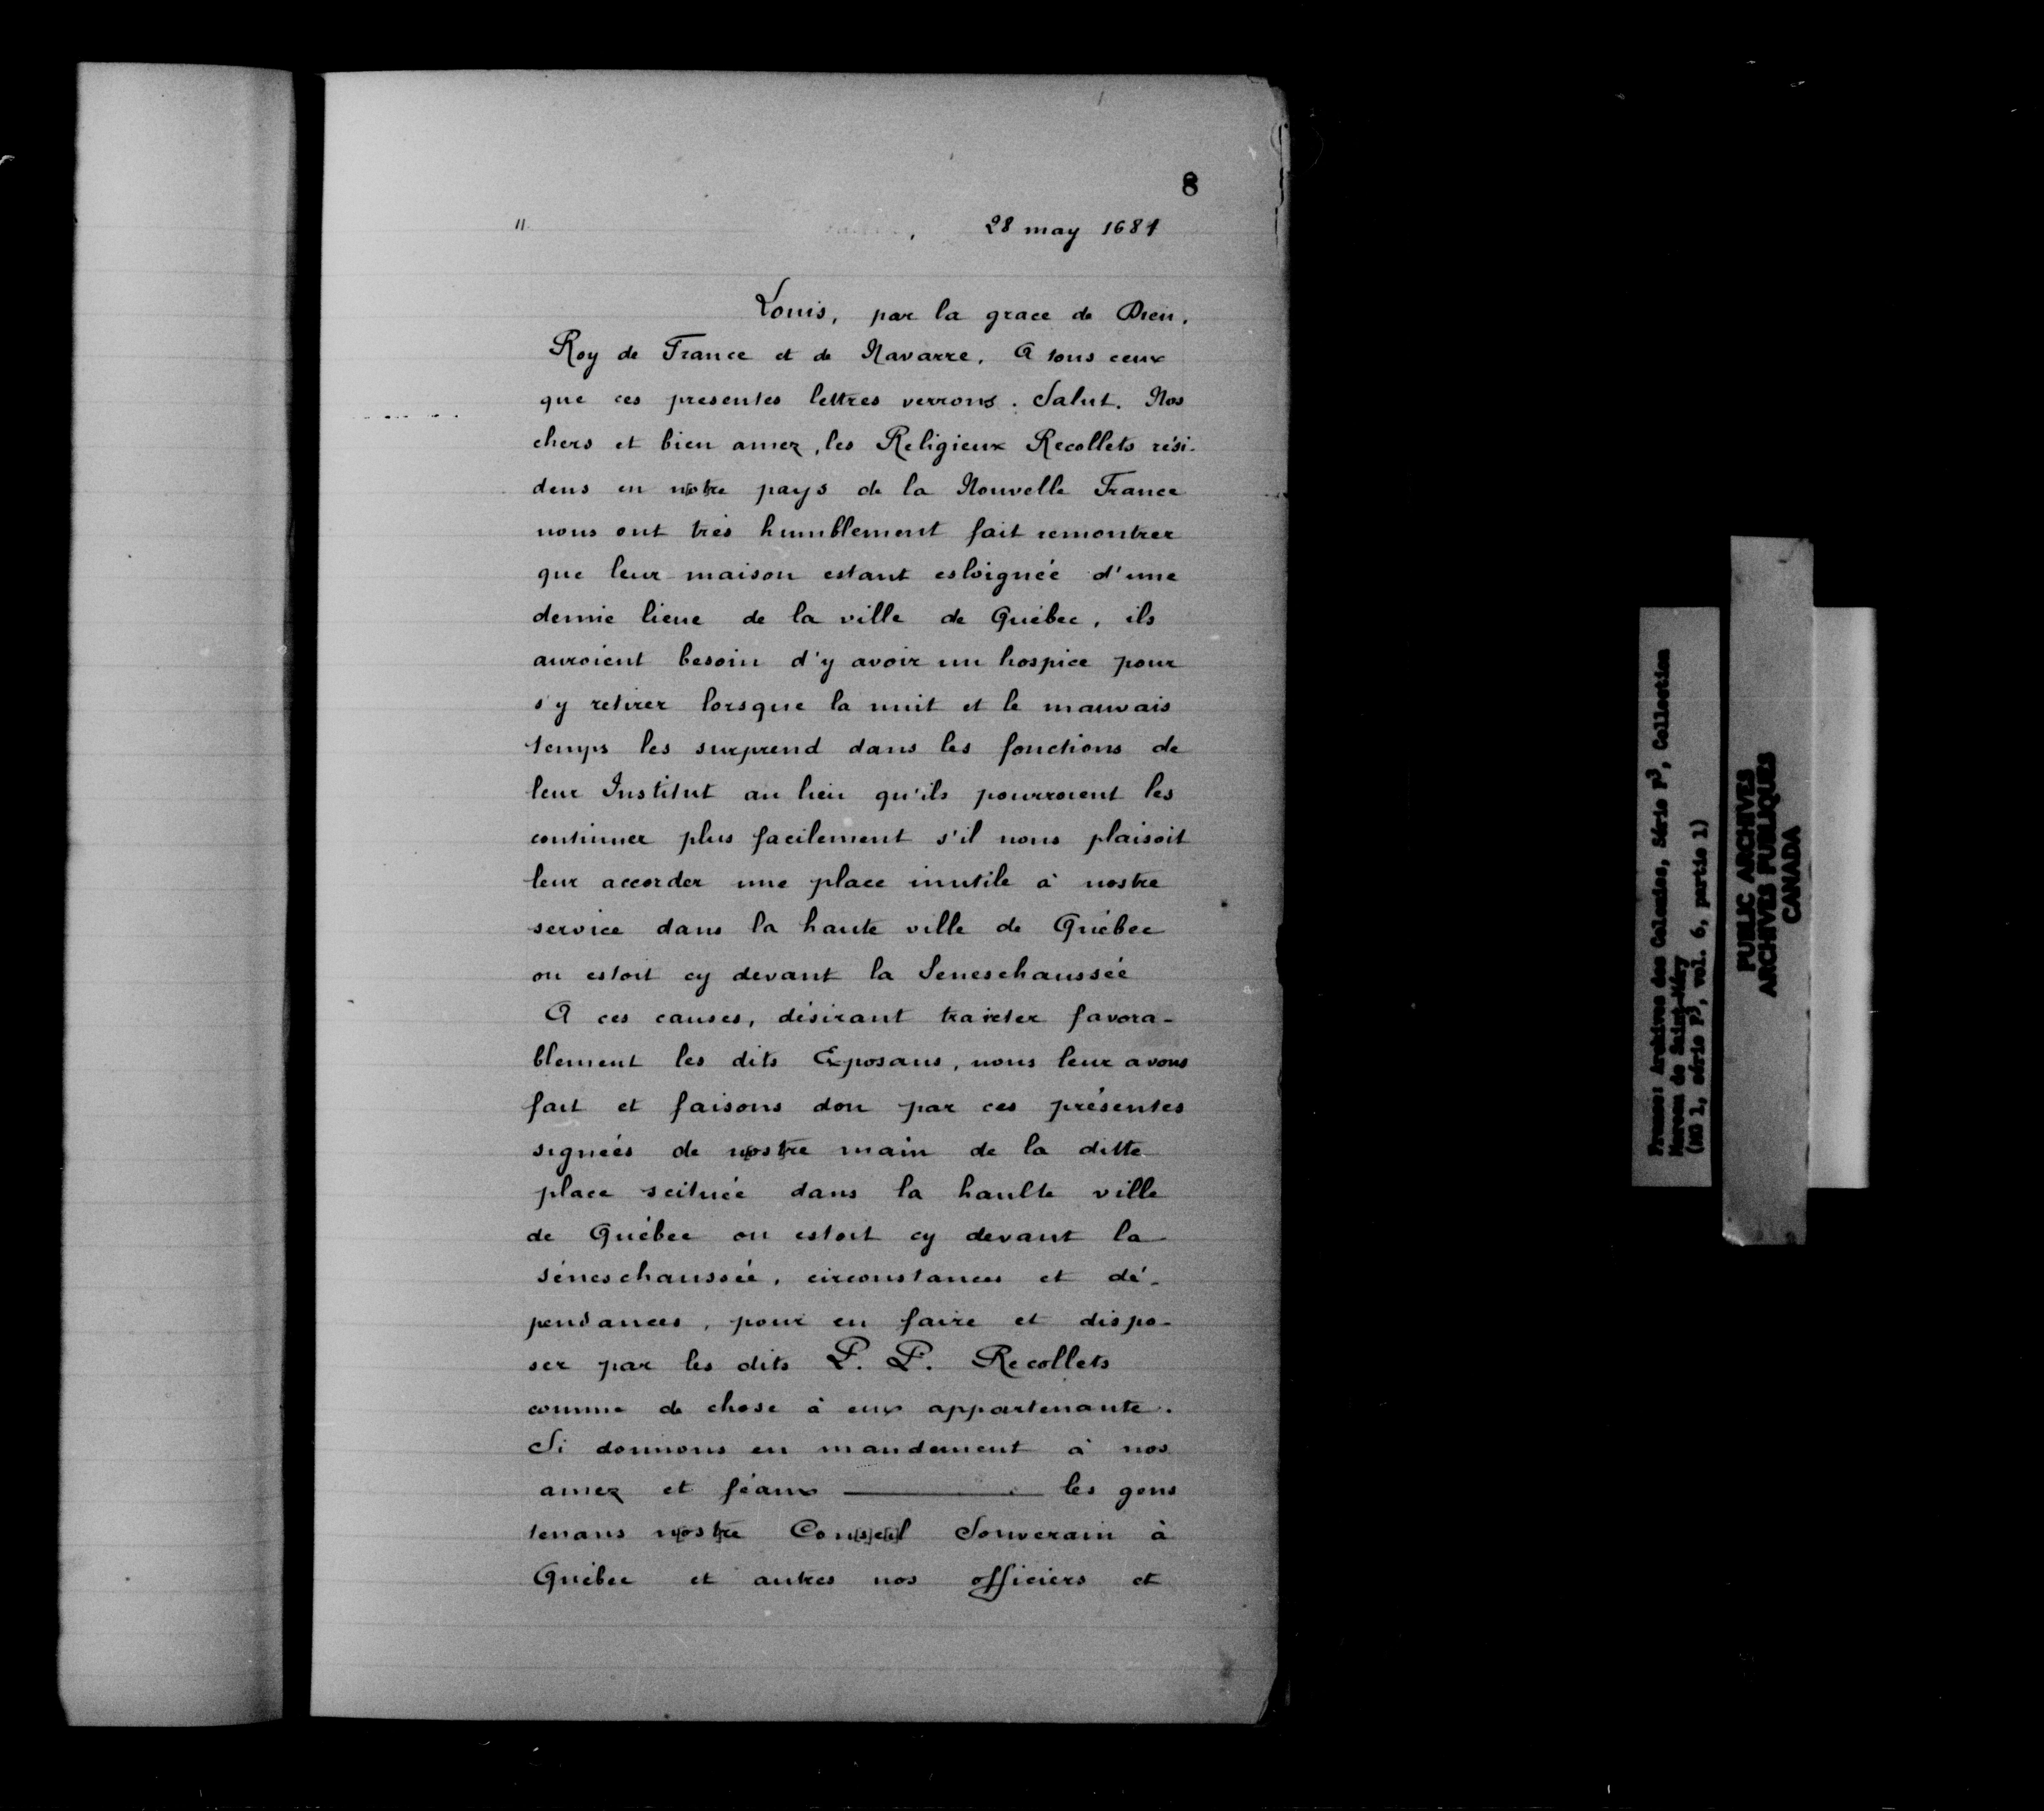 8
" 28 may 1681
Louis, par la grace de Dieu,
Roy de France et de Navarre. A tous ceux
que ces presentes lettres verrons. Salut. Nos
chers et bien amez, les Religieux Recollets rési-
dens en n[ot]re pays de la Nouvelle France
nous ont très humblement fait remontrer
que leur maison estant esloignée d'une
demie lieue de la ville de Québec, ils
auroient besoin d'y avoir un hospice pour
s'y retirer lorsque la nuit et le mauvais
temps les surprend dans les fonctions de
leur Institut au lieu qu'ils pourroient les
continuer plus facilement s'il nous plaisoit
leur accorder une place inutile à nostre
service dans la haute ville de Québec
ou estoit cy devant la Seneschaussée
A ces causes, désirant traicter favora-
blement les dits Exposans, nous leur avons
fait et faisons don par ces présentes
signées de n[os]tre main de la ditte
place scituée dans la haulte ville
de Québec ou estoit cy devant la
séneschaussée, circonstances et dé-
pendances, pour en faire et dispo-
ser par les dits P. P. Recollets
comme de chose à eux appartenante.
Si donnons en mandement à nos
amez et féaux ——— les gens
tenans n[os]tre Con[s]e[i]l Souverain à
Québec et autres nos officiers et
France: Archives des Colonies, Série F3, Collection
Moreau de Saint-Méry
(MG 1, série F3, vol. 6, partie 1)
PUBLIC ARCHIVES
ARCHIVES PUBLIQUES
CANADA